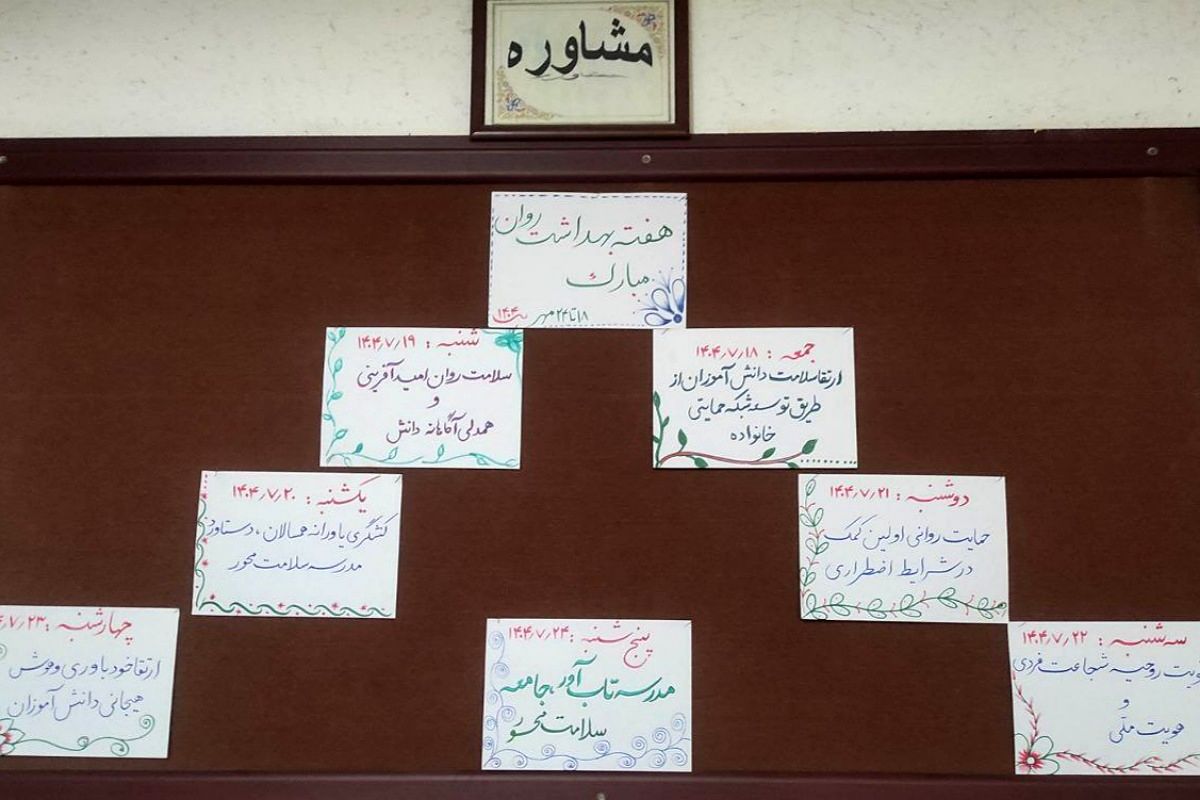 مشاوره
هفته بهداشت روان
مبارک
۱۸ تا ۲۴ مهر ۱۴۰۴
جمعه : ۱۴۰۴/۷/۱۸
ارتقا سلامت دانش آموزان از
طریق توسعه شبکه حمایتی
خانواده
شنبه : ۱۴۰۴/۷/۱۹
سلامت روان امید آفرینی
و
همدلی آگاهانه دانش
یکشنبه : ۱۴۰۴/۷/۲۰
کنشگری یاورانه همسالان ، دستاورد
مدرسه سلامت محور
دوشنبه : ۱۴۰۴/۷/۲۱
حمایت روانی اولین کمک
در شرایط اضطراری
سه شنبه : ۱۴۰۴/۷/۲۲
روحیه شجاعت فردی
و
هویت ملی
چهارشنبه : ۷/۲۳/
ارتقا خود باوری و هوش
هیجانی دانش آموزان
پنج شنبه : ۱۴۰۴/۷/۲۴
مدرسه تاب آور ، جامعه
سلامت محور